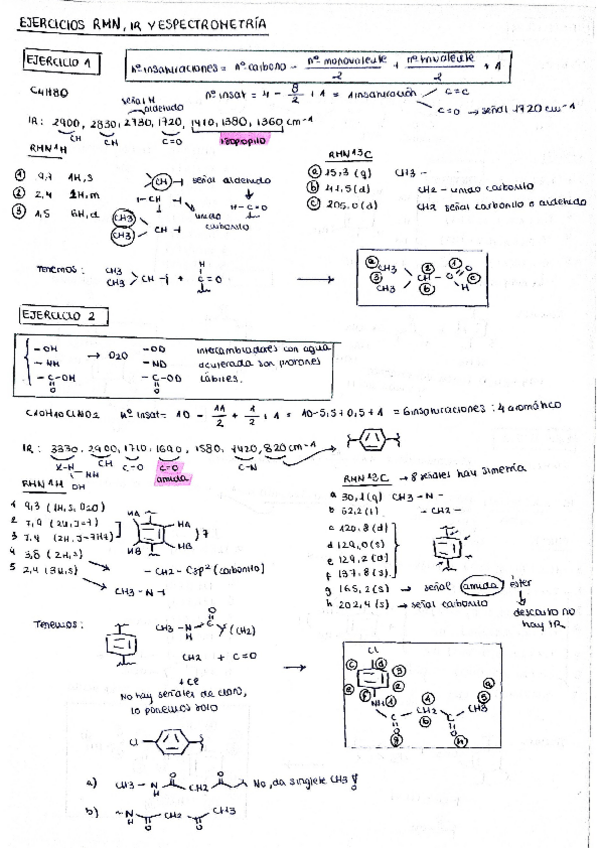 EJERCICIOS RMN, IR Y ESPECTROMETRÍA
EJERCICIO 1
nº insaturaciones = nº carbono - nº monovalente / 2 + nº trivalente / 2 + 1
C4H8O
nº insat = 4 - 8/2 + 1 = 1 insaturación
C=C
C=O → señal 1720 cm-1
señal H aldehido
IR: 2900, 2830, 2730, 1720, 1410, 1380, 1360 cm-1
CH CH C=O isopropilo
RMN 1H
1 9,7 1H,s
2 2,4 1H,m
3 1,5 6H,d
CH señal aldehido
-CH- unido carbonilo
H-C=O
CH3
CH3
CH
RMN 13C
a 15,3 (q) CH3 -
b 41,5 (d) CH2 - unido carbonilo
c 205,0 (d) CH2 señal carbonilo o aldehido
Tenemos: CH3 CH3 CH + H C=O →
a 3 CH3 CH3 2 CH b 1 C O H c
EJERCICIO 2
-OH → D2O -OD
-NH -ND
-C-OH -C-OD
O O
intercambiadores con agua
deuterada son protones
lábiles.
C10H10ClNO2 nº insat = 10 - 11/2 + 1/2 + 1 = 10-5,5+0,5+1 = 6 insaturaciones : 4 aromático
IR: 3330, 2900, 1710, 1690, 1580, 1420, 820 cm-1
X-H NH OH CH C=O C=O amida C-N
RMN 1H
1 9,3 (1H,s, D2O)
2 7,9 (2H, J=7)
3 7,4 (2H, J=7Hz)
4 3,8 (2H,s)
5 2,4 (3H,s)
HA HA HB HB 7
-CH2-Csp2 (carbonilo)
CH3-N-
RMN 13C → 8 señales hay simetría
a 30,1 (q) CH3-N-
b 62,2 (t) -CH2-
c 120,8 (d)
d 129,0 (s)
e 129,2 (d)
f 137,8 (s)
g 165,2 (s) → señal amida, éster
h 202,4 (s) → señal carbonilo
descarto no
hay IR
Tenemos: CH3-N-C (CH2)
H O
CH2 + C=O
+ Cl
No hay señales de cloro,
lo ponemos solo
Cl
Cl
c d 3 e 2 f
NH 1 C O g CH2 4 b C O h CH3 5 a
a) CH3-N-CH2 No, da singlete CH3
H O O
b) -N-CH2-CH3
H O O